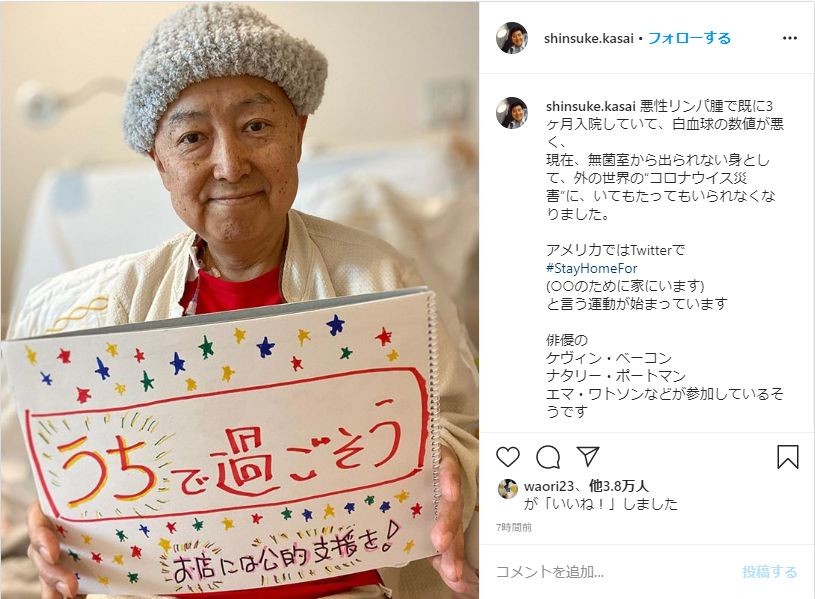 うちで過ごそう
お店には公的支援を!
shinsuke.kasai • フォローする
shinsuke.kasai 悪性リンパ腫で既に3
ヶ月入院していて、白血球の数値が悪
く、
現在、無菌室から出られない身とし
て、外の世界の“コロナウイス災
害”に、いてもたってもいられなくな
りました。
アメリカではTwitterで
#StayHomeFor
(○○のために家にいます)
と言う運動が始まっています
俳優の
ケヴィン・ベーコン
ナタリー・ポートマン
エマ・ワトソンなどが参加しているそ
うです
waori23、他3.8万人
が「いいね！」しました
7時間前
コメントを追加... 投稿する